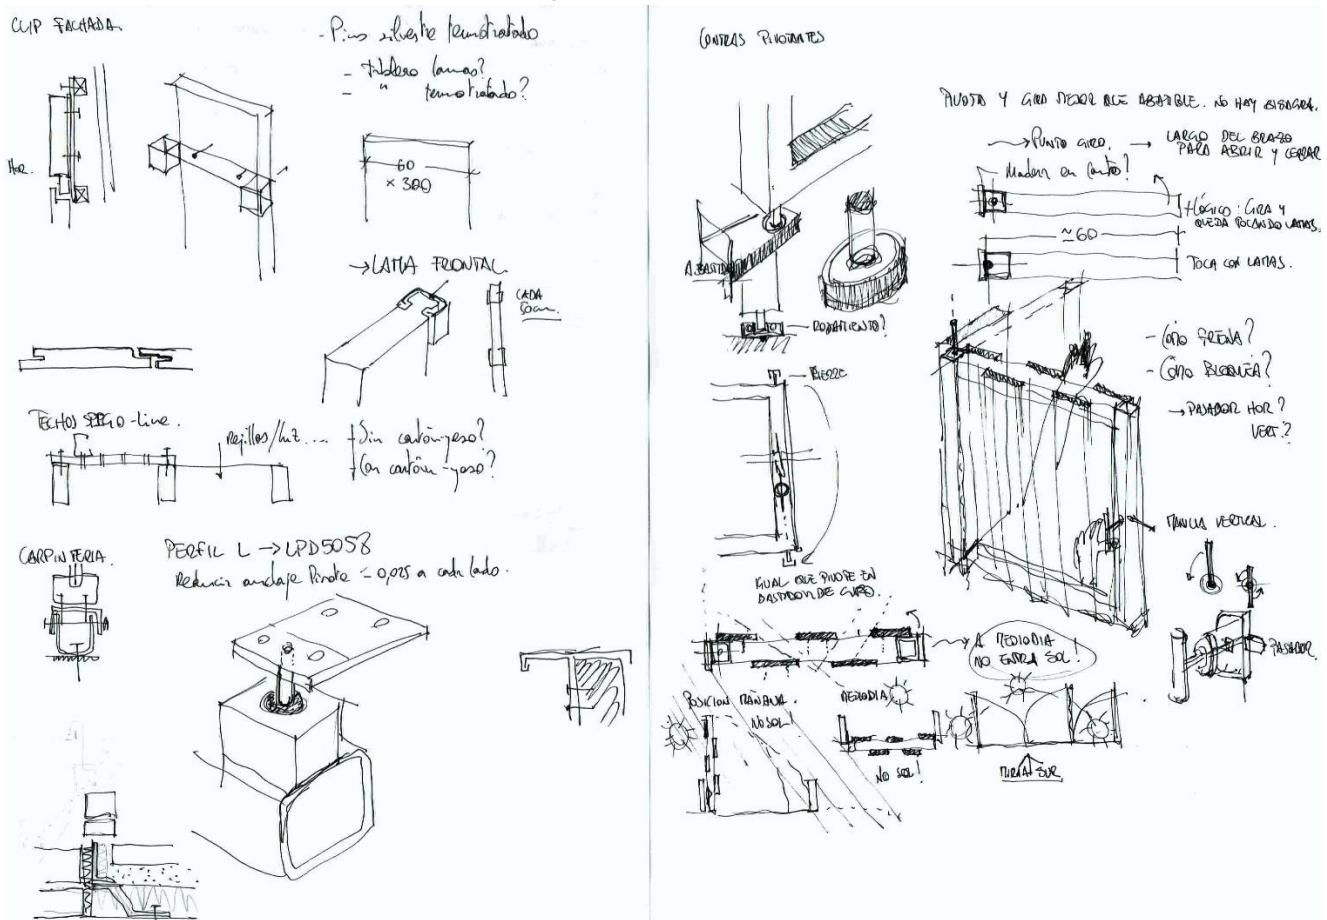 CLIP FACHADA.
- Pino silvestre termotratado
- tablero lamas?
- " termotratado?
HOR.
60
× 300
→ LAMA FRONTAL
CADA
TECHOS
-Line.
Rejillas/luz....
Sin cartón-yeso?
Con cartón-yeso?
CARPINTERIA
PERFIL L → LPD5058
Reducir anclaje Pivote = 0,025 a cada lado.
CONTRAS PIVOTANTES
PIVOTA Y GIRA MEJOR QUE ABATIBLE. NO HAY BISAGRA.
→ PUNTO GIRO. → LARGO DEL BRAZO
PARA ABRIR Y CERRAR
Madera en canto?
+ LÓGICO: GIRA Y
QUEDA TOCANDO LAMAS.
≃60
TOCA CON LAMAS.
A BASTIDOR
RODAMIENTO?
CIERRE
- CÓMO FRENA?
- CÓMO BLOQUEA?
→ PASADOR HOR?
VERT?
IGUAL QUE PIVOTE EN
BASTIDOR DE GIRO.
MANILLA VERTICAL.
PASADOR.
→ A MEDIODIA
NO ENTRA SOL!
POSICION MAÑANA.
NO SOL!
MEDIODIA
NO SOL!
MIRA SUR